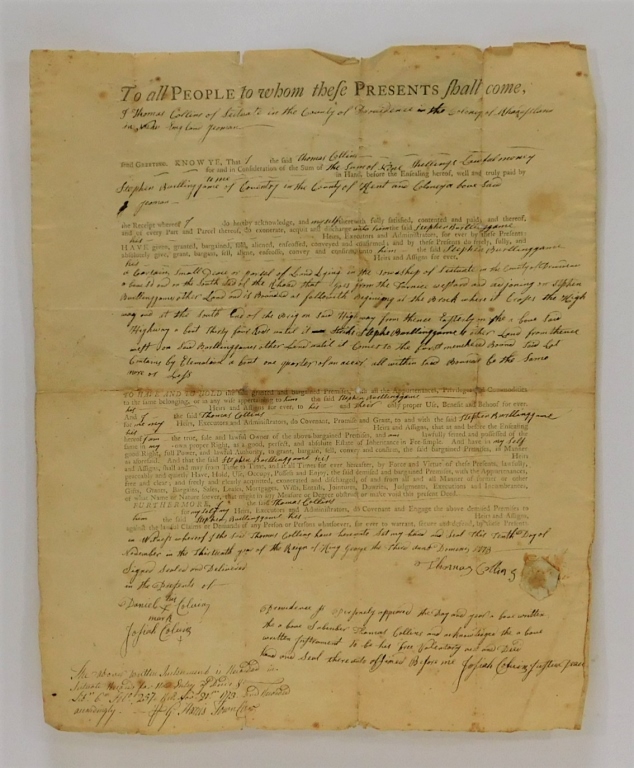 To all PEOPLE to whom these PRESENTS shall come,
I Thomas Collins of Scituate in the County of Providence in the Colony of
in New England yeoman
send GREETING. KNOW YE, That I the said Thomas Collins
for and in Consideration of the Sum of the Sum of lawful money
to me in Hand, before the Ensealing hereof, well and truly paid by
Stephen of Coventry in the County of Kent and Coloney a bove Said
yeoman
the Receipt whereof I do hereby acknowledge, and myself therewith fully satisfied, contented and paid; and thereof,
and of every Part and Parcel thereof, do exonerate, acquit and discharge the said Stephen
his Heirs, Executors and Administrators, for ever by these Presents:
HAVE given, granted, bargained, sold, aliened, enfeoffed, conveyed and confirmed; and by these Presents do freely, fully, and
absolutely give, grant, bargain, sell, aliene, enfeoffe, convey and confirm unto him the said Stephen
his Heirs and Assigns for ever,
a Certain Small Piece or parsel of Land Lying in the Township of Scituate in the County of
a bove Said on the South Sid of the Rhoad that from the Furnace westard and an Joining on Stephen
other Land and is Bounded as followeth Begining at the Brook where it Cross the High
way and at the South End of the Brig on Said Highway from thence Easterly on the a bove Said
Highway a bout thirty four Rod until it Stephen other Land from thence
west on Said other Land until it Comes to the first mentioned Bound Said Lot
Contains by Estemation a bout one quarter of an acer, all within Said Bounds be the Same
more or Less
TO HAVE AND TO HOLD the said granted and bargained Premises, with all the Appurtenances, Privileges and Commodities
to the same belonging, or in any wise appertaining to him the said Stephen
his Heirs and Assigns for ever, to his and their only proper Use, Benefit and Behoof for ever.
And I the said Thomas Collins
for my Heirs, Executors and Administrators, do Covenant, Promise and Grant, to and with the said Stephen
his Heirs and Assigns, that at and before the Ensealing
hereof I am the true, sole and lawful Owner of the above bargained Premises, and am lawfully seized and possessed of the
same in my own proper Right, as a good, perfect, and absolute Estate of Inheritance in Fee Simple. And have in my Self
good Right, full Power, and lawful Authority, to grant, bargain, sell, convey and confirm, the said bargained Premises, in Manner
as aforesaid. And that the said Stephen his Heirs
and Assigns, shall and may from Time to Time, and at all Times for ever hereafter, by Force and Virtue of these Presents, lawfully,
peaceably and quietly Have, Hold, Use, Occupy, Possess and Enjoy, the said demised and bargained Premises, with the Appurtenances,
free and clear, and freely and clearly acquitted, exonerated and discharged, of and from all and all Manner of former or other
Gifts, Grants, Bargains, Sales, Leases, Mortgages, Wills, Entails, Jointures, Dowries, Judgments, Executions and Incumbrances,
of what Name or Nature soever, that might in any Measure or Degree obstruct or make void this present Deed.
FURTHERMORE, I the said Thomas Collins
for my Self my Heirs, Executors and Administrators, do Covenant and Engage the above demised Premises to
him the said Stephen his Heirs and Assigns,
against the lawful Claims or Demands of any Person or Persons whatsoever, for ever to warrant, secure and defend, by these Presents
in Witness whereof I the Said Thomas Collins have hereunto Set my hand and Seal this Tenth Day of
November in the Thirteenth year of the Reign of King George the third
Signed Sealed and Delivered
in the Presents of
Thomas Collins
Daniel
mark
Josiah
Providence Personaly appeared the Day and year a bove written
the a bove Subscriber Thomas Collins and acknowledged the a bove
written Instrement to be his free Voluntary act and Deed
hand and Seal thereunto affixed Before me Josiah Justice peace
The Above written Instrument is Recorded in
Scituate
accordingly Harris Town Clerk